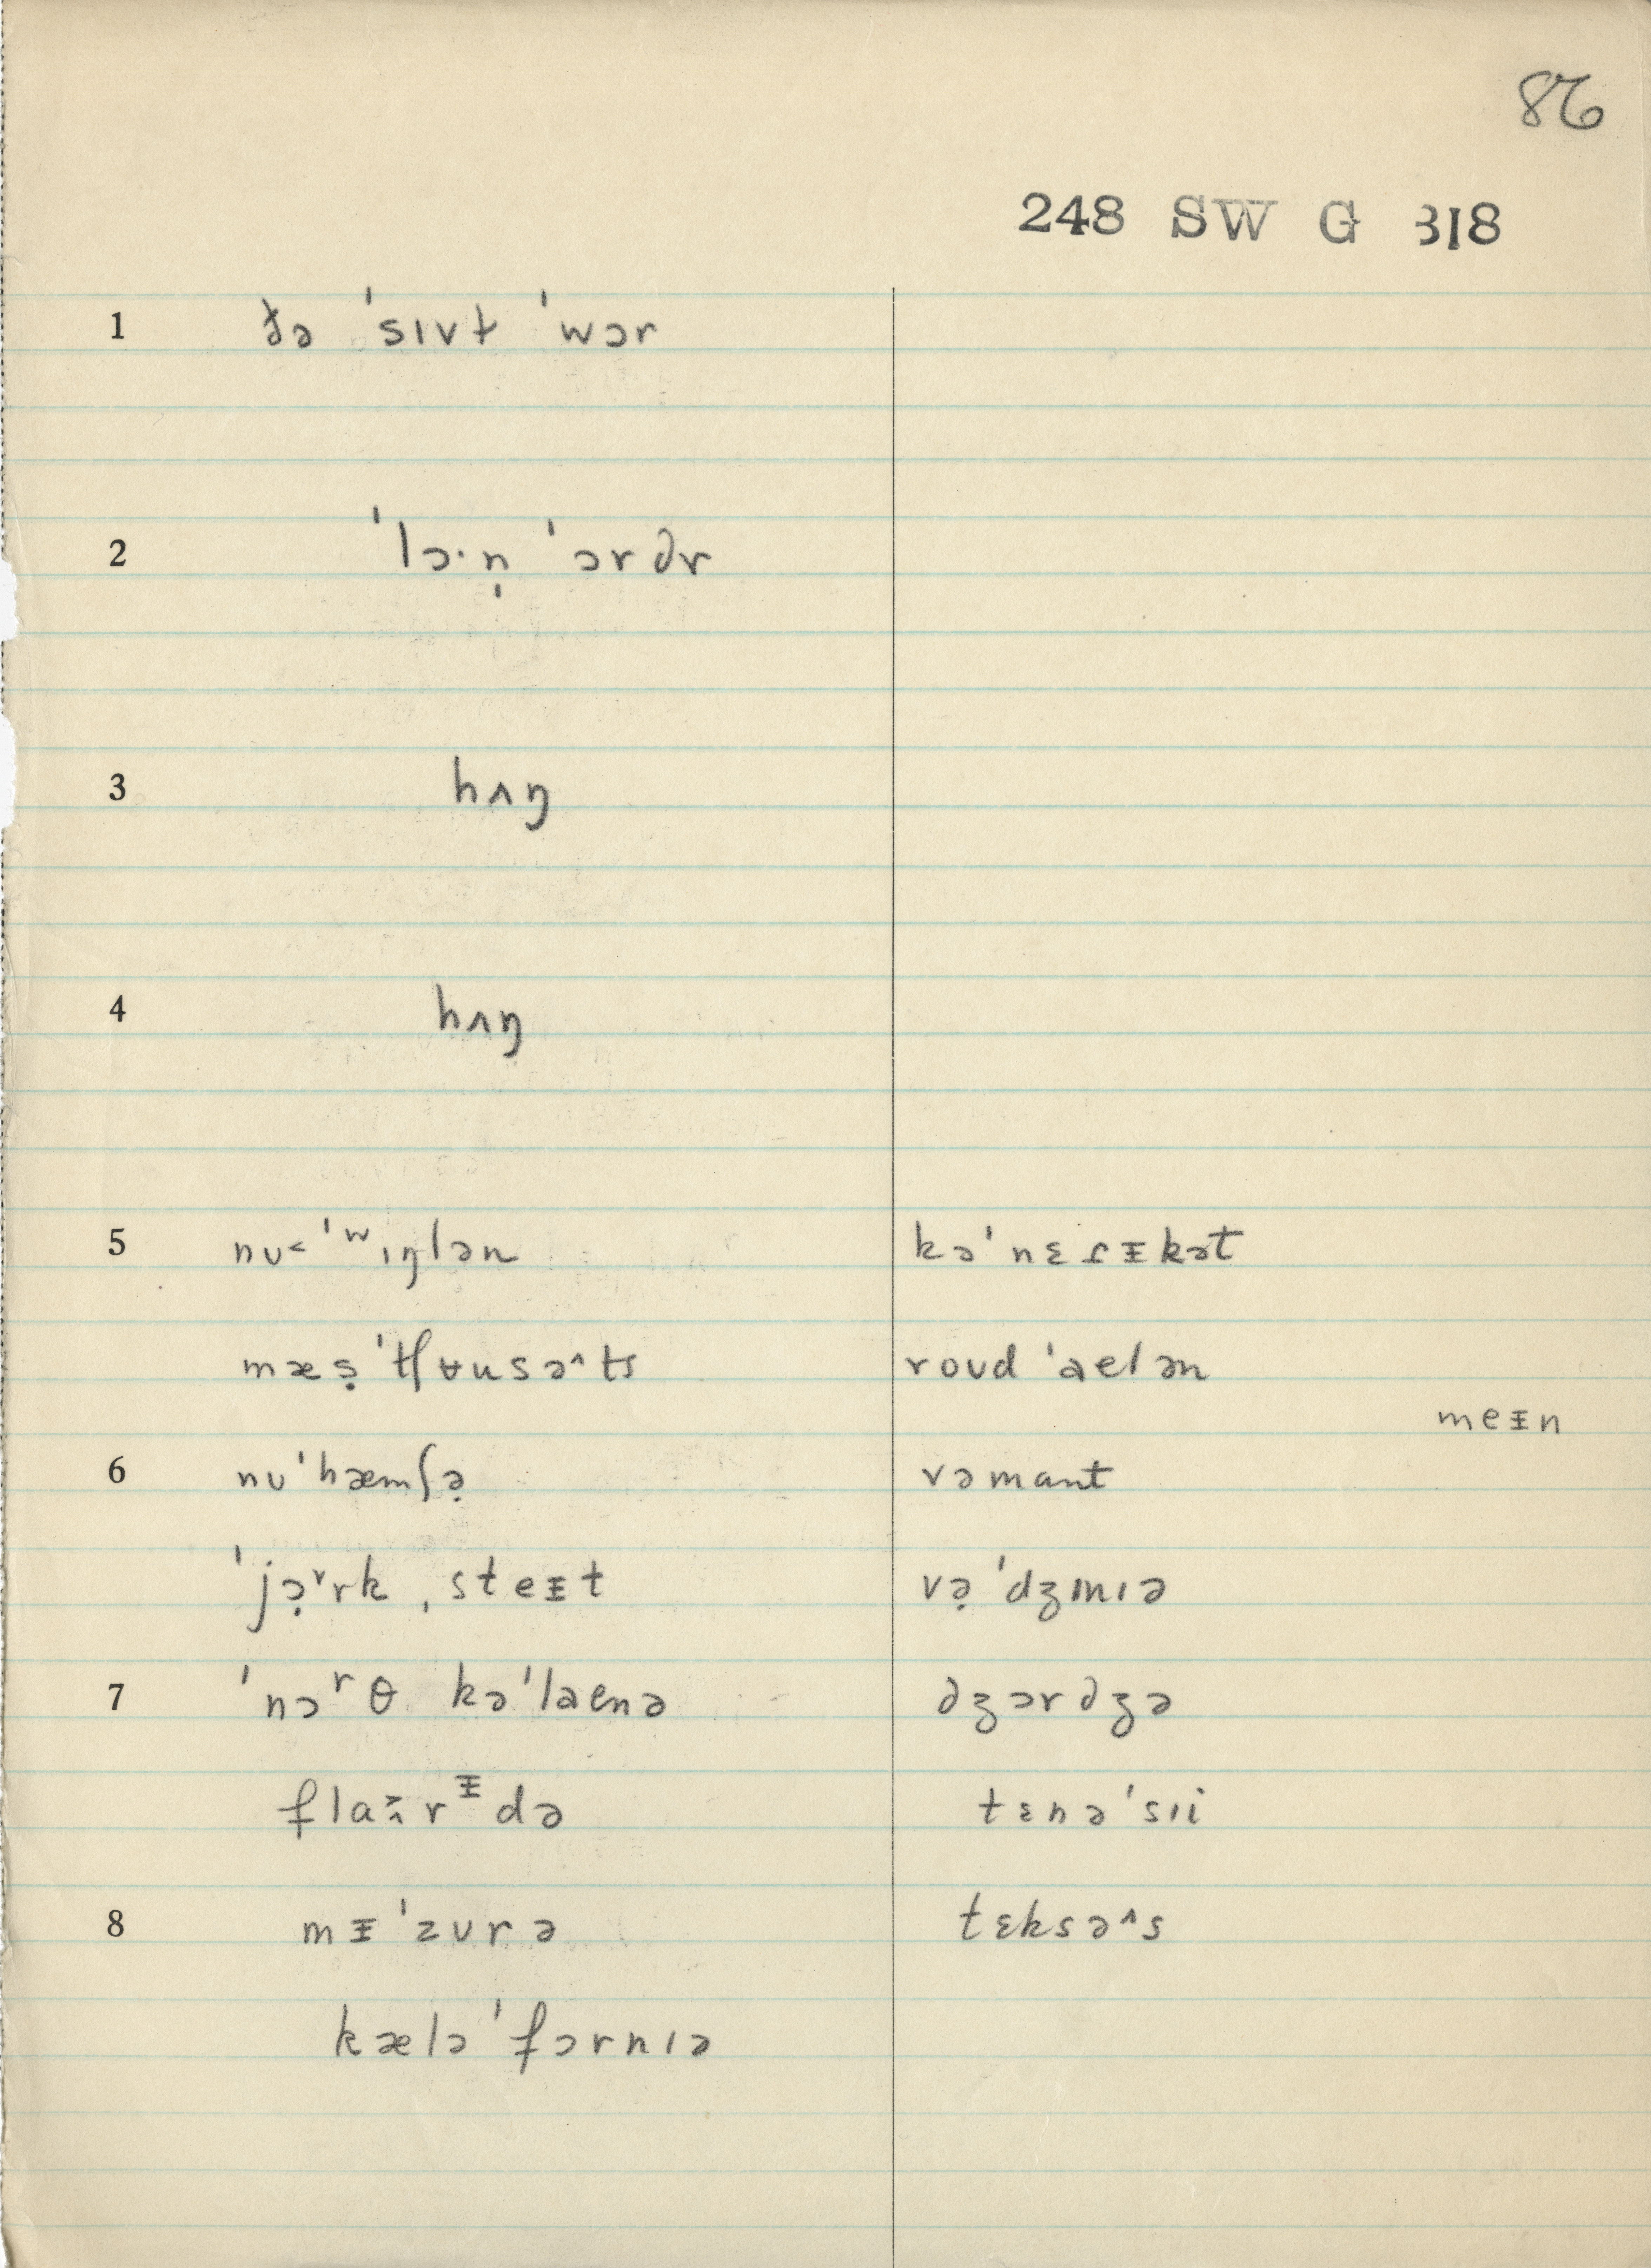 86
248 SW G 318
1 ðə ˈsɪvt̵ ˈwɔr
2 ˈlɔ·n̩ ˈɔrdr
3 hʌŋ
4 hʌŋ
5 nʊ< ˈwɪŋlən kəˈnɛɾᵻkət
mæṣ ˈtʃʉusə^ts roud ˈaelən
meᵻn
6 nʊˈhæmʃə̣ vəmant
ˈjɔ̣ᵛrk ˌsteᵻt və̣ ˈdʒɪnɪə
7 ˈnɔʳθ kəˈlaenə dʒɔrdʒə
rᵻdə tɛnəˈsɪi
8 mᵻˈzʊrə tɛksə^s
kæləˈfɔrnɪə